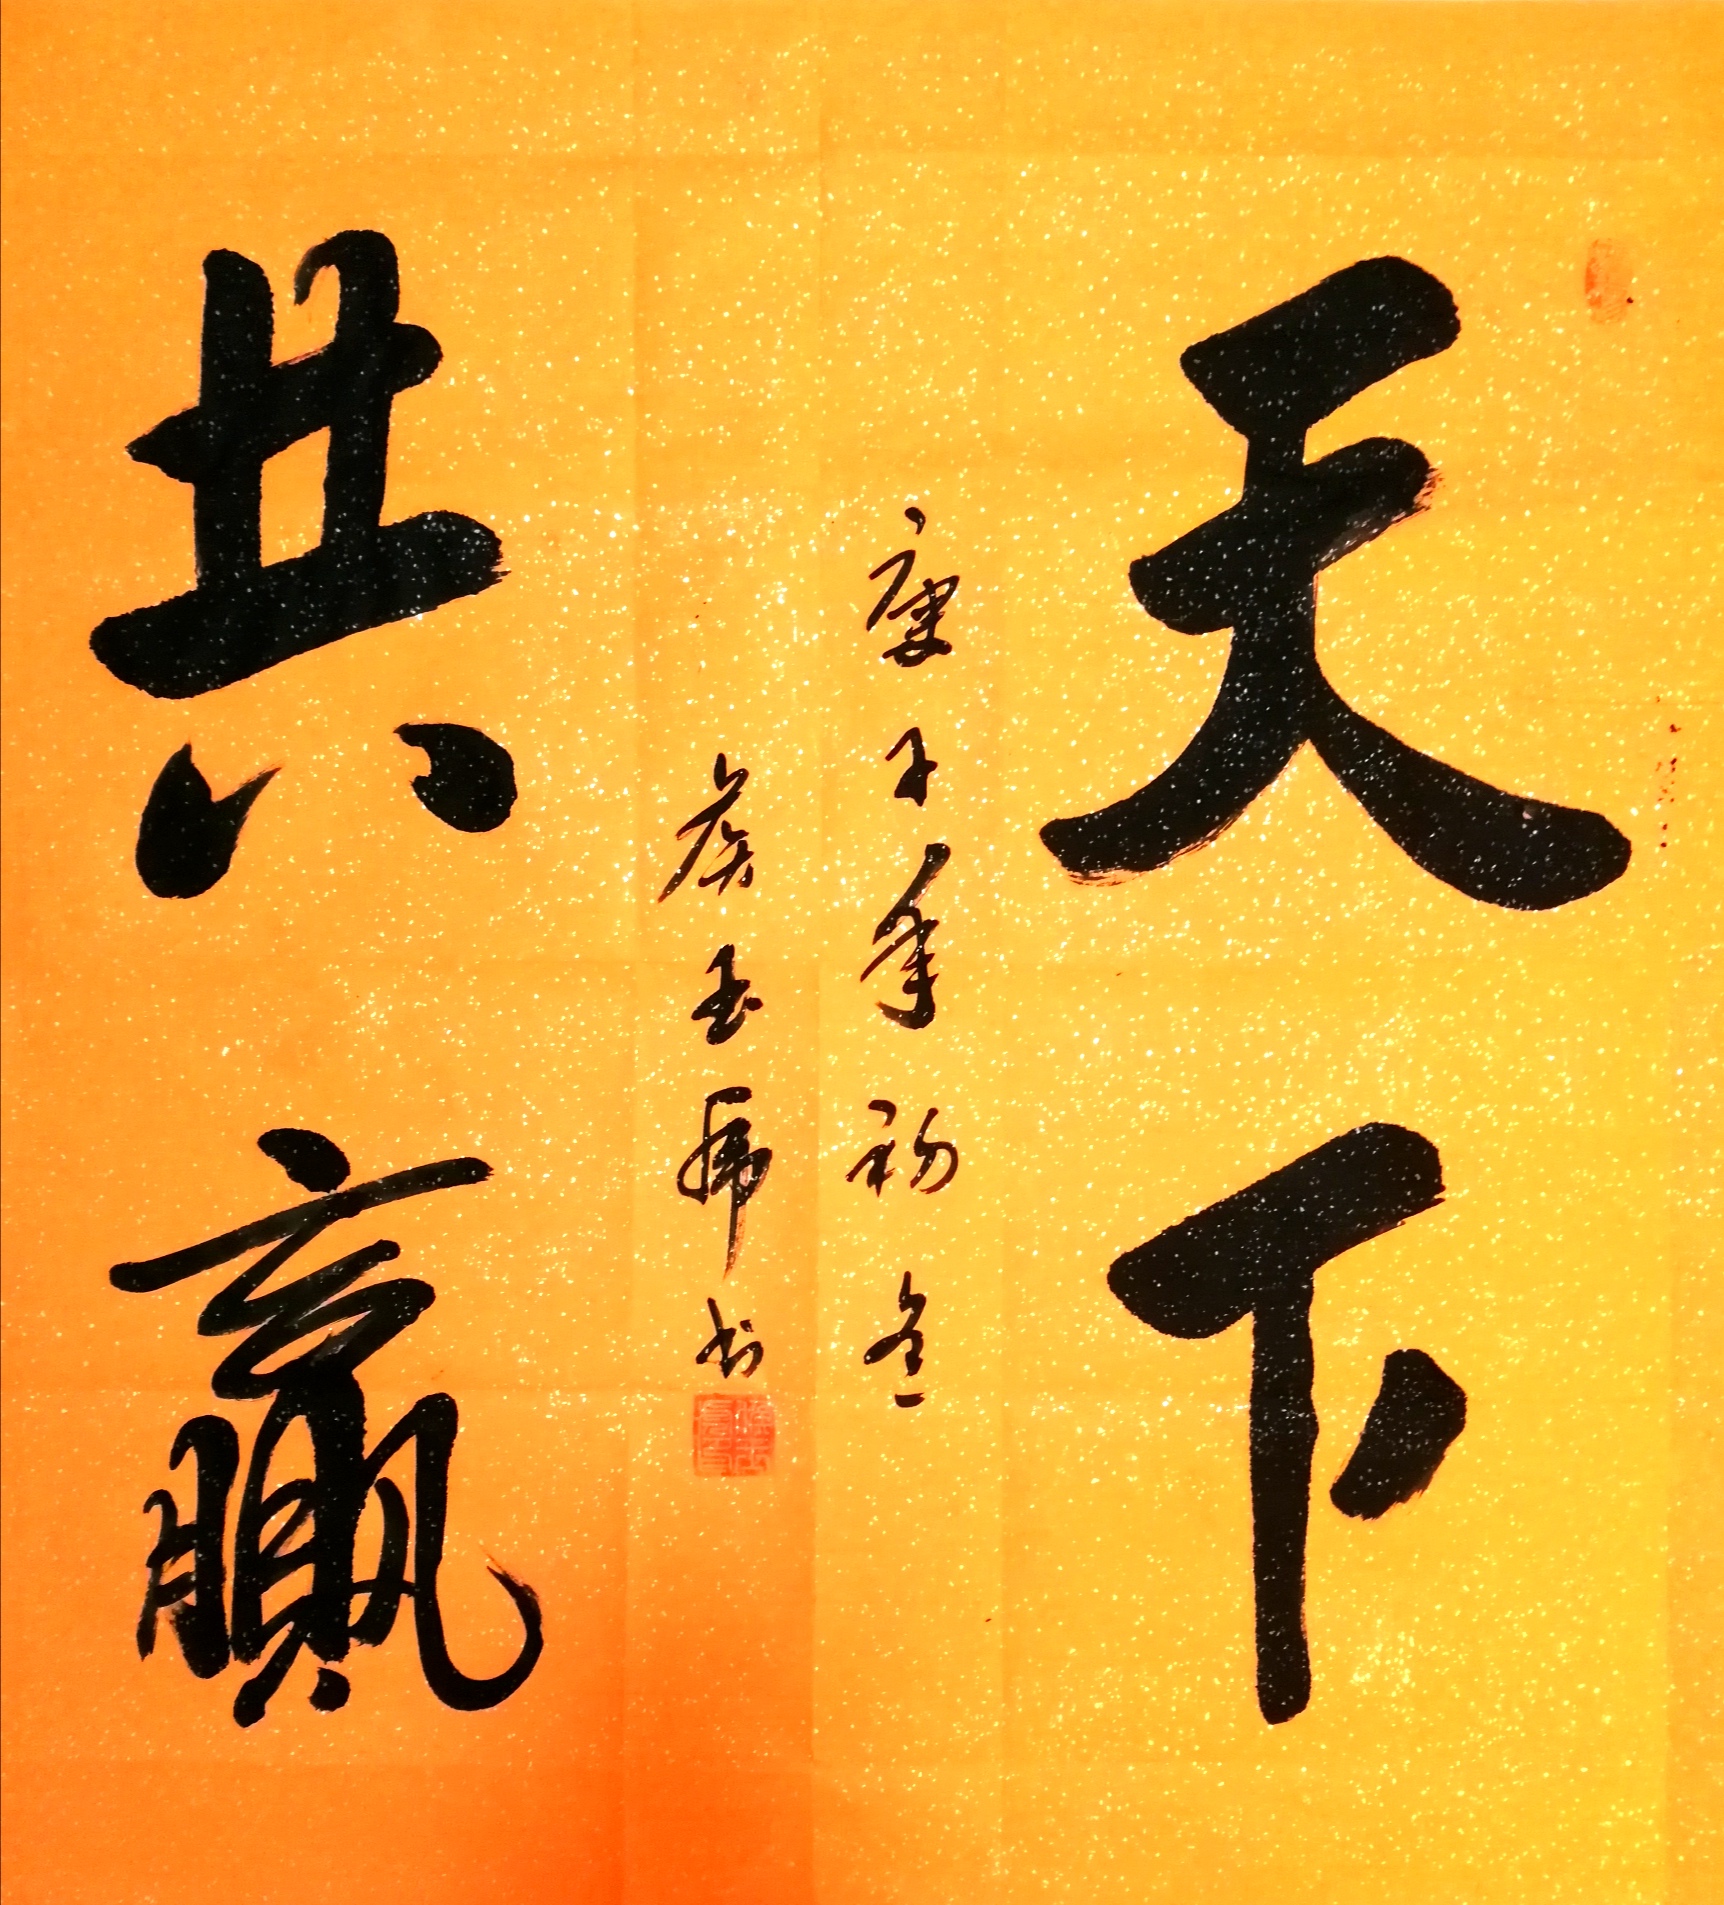 天下
共赢
庚子年初冬
侯玉虎书